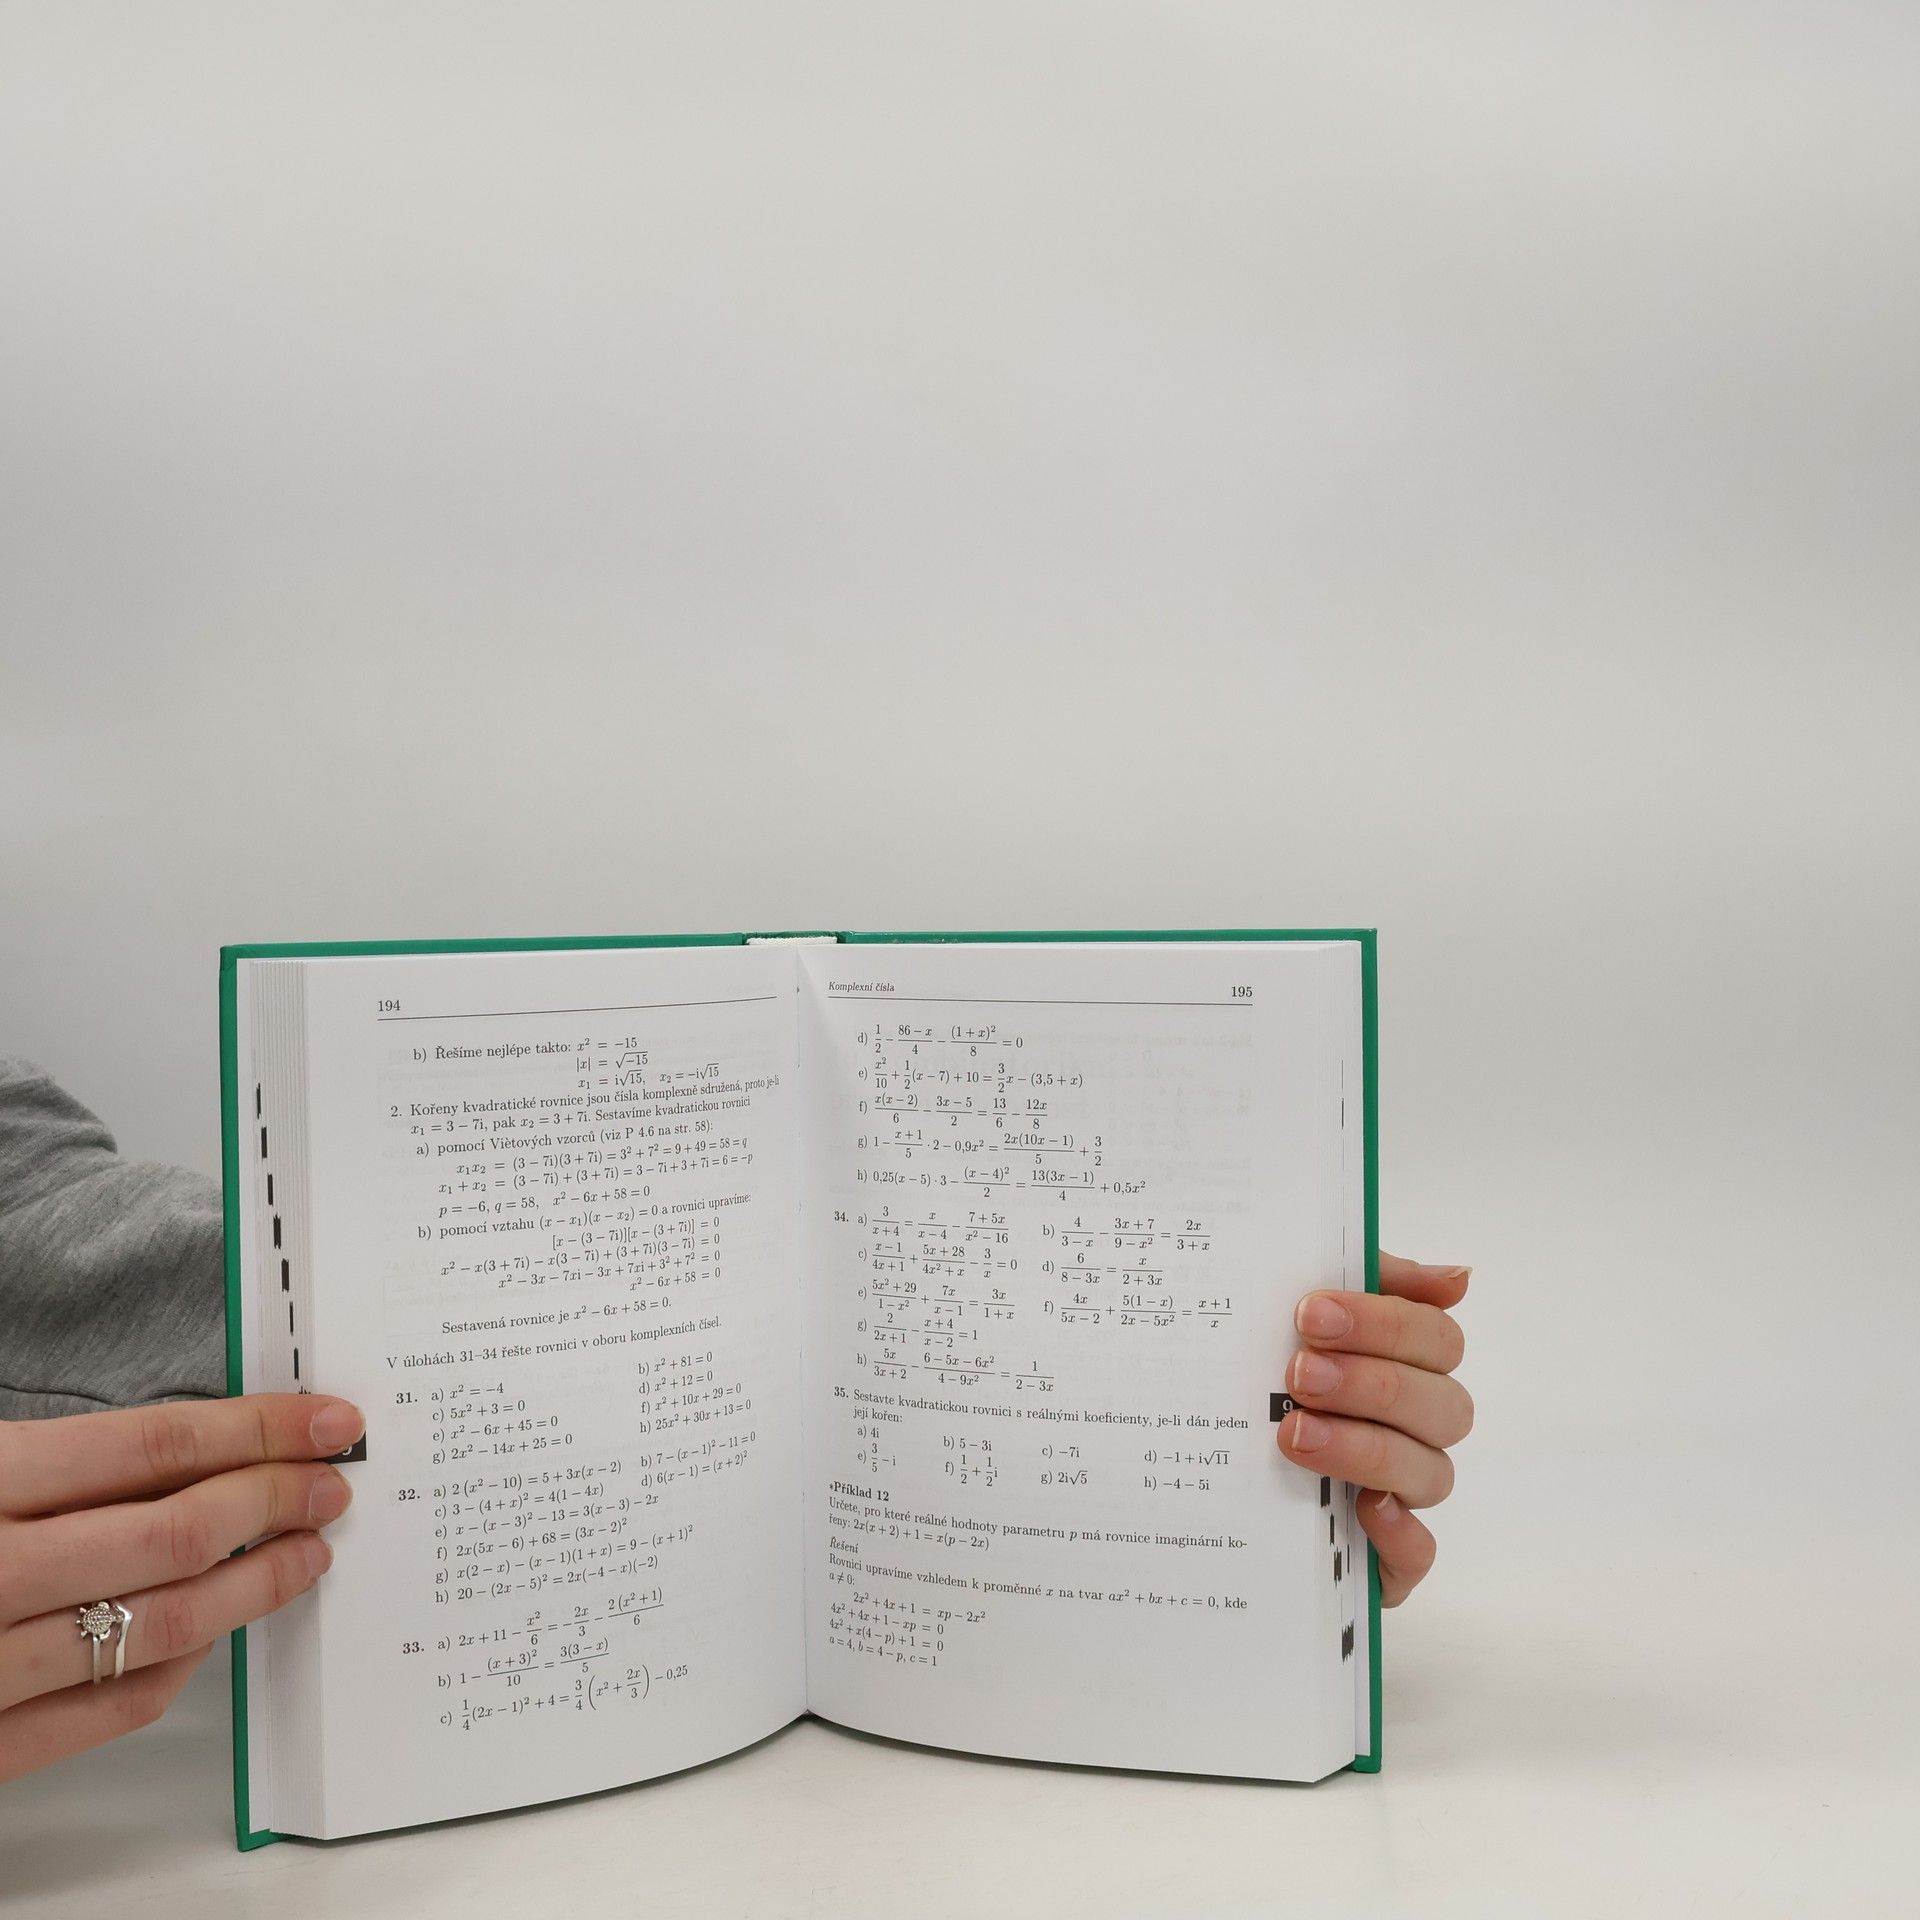 194
b) Řešíme nejlépe takto: x² = −15
|x| = √−15
x₁ = i√15, x₂ = −i√15
2. Kořeny kvadratické rovnice jsou čísla komplexně sdružená, proto je-li
x₁ = 3 − 7i, pak x₂ = 3 + 7i. Sestavíme kvadratickou rovnici
a) pomocí Viètových vzorců (viz P 4.6 na str. 58):
x₁x₂ = (3 − 7i)(3 + 7i) = 3² + 7² = 9 + 49 = 58 = q
x₁ + x₂ = (3 − 7i) + (3 + 7i) = 3 − 7i + 3 + 7i = 6 = −p
p = −6, q = 58, x² − 6x + 58 = 0
b) pomocí vztahu (x − x₁)(x − x₂) = 0 a rovnici upravíme:
[x − (3 − 7i)][x − (3 + 7i)] = 0
x² − x(3 + 7i) − x(3 − 7i) + (3 + 7i)(3 − 7i) = 0
x² − 3x − 7xi − 3x + 7xi + 3² + 7² = 0
x² − 6x + 58 = 0
Sestavená rovnice je x² − 6x + 58 = 0.
V úlohách 31–34 řešte rovnici v oboru komplexních čísel.
31. a) x² = −4 b) x² + 81 = 0
c) 5x² + 3 = 0 d) x² + 12 = 0
e) x² − 6x + 45 = 0 f) x² + 10x + 29 = 0
g) 2x² − 14x + 25 = 0 h) 25x² + 30x + 13 = 0
32. a) 2(x² − 10) = 5 + 3x(x − 2) b) 7 − (x − 1)² − 11 = 0
c) 3 − (4 + x)² = 4(1 − 4x) d) 6(x − 1) = (x + 2)²
e) x − (x − 3)² − 13 = 3(x − 3) − 2x
f) 2x(5x − 6) + 68 = (3x − 2)²
g) x(2 − x) − (x − 1)(1 + x) = 9 − (x + 1)²
h) 20 − (2x − 5)² = 2x(−4 − x)(−2)
33. a) 2x + 11 − x²/6 = −2x/3 − 2(x² + 1)/6
b) 1 − (x + 3)²/10 = 3(3 − x)/5
c) 1/4(2x − 1)² + 4 = 3/4(x² + 2x/3) − 0,25
Komplexní čísla 195
d) 1/2 − (86 − x)/4 − (1 + x)²/8 = 0
e) x²/10 + 1/2(x − 7) + 10 = 3/2x − (3,5 + x)
f) x(x − 2)/6 − (3x − 5)/2 = 13/6 − 12x/8
g) 1 − (x + 1)/5 · 2 − 0,9x² = 2x(10x − 1)/5 + 3/2
h) 0,25(x − 5) · 3 − (x − 4)²/2 = 13(3x − 1)/4 + 0,5x²
34. a) 3/(x + 4) = x/(x − 4) − (7 + 5x)/(x² − 16) b) 4/(3 − x) − (3x + 7)/(9 − x²) = 2x/(3 + x)
c) (x − 1)/(4x + 1) + (5x + 28)/(4x² + x) − 3/x = 0 d) 6/(8 − 3x) = x/(2 + 3x)
e) (5x² + 29)/(1 − x²) + 7x/(x − 1) = 3x/(1 + x) f) 4x/(5x − 2) + 5(1 − x)/(2x − 5x²) = (x + 1)/x
g) 2/(2x + 1) − (x + 4)/(x − 2) = 1
h) 5x/(3x + 2) − (6 − 5x − 6x²)/(4 − 9x²) = 1/(2 − 3x)
35. Sestavte kvadratickou rovnici s reálnými koeficienty, je-li dán jeden
její kořen:
a) 4i b) 5 − 3i c) −7i d) −1 + i√11
e) 3/5 − i f) 1/2 + 1/2i g) 2i√5 h) −4 − 5i
*Příklad 12
Určete, pro které reálné hodnoty parametru p má rovnice imaginární ko-
řeny: 2x(x + 2) + 1 = x(p − 2x)
Řešení
Rovnici upravíme vzhledem k proměnné x na tvar ax² + bx + c = 0, kde
a ≠ 0:
2x² + 4x + 1 = xp − 2x²
4x² + 4x + 1 − xp = 0
4x² + x(4 − p) + 1 = 0
a = 4, b = 4 − p, c = 1
9
9